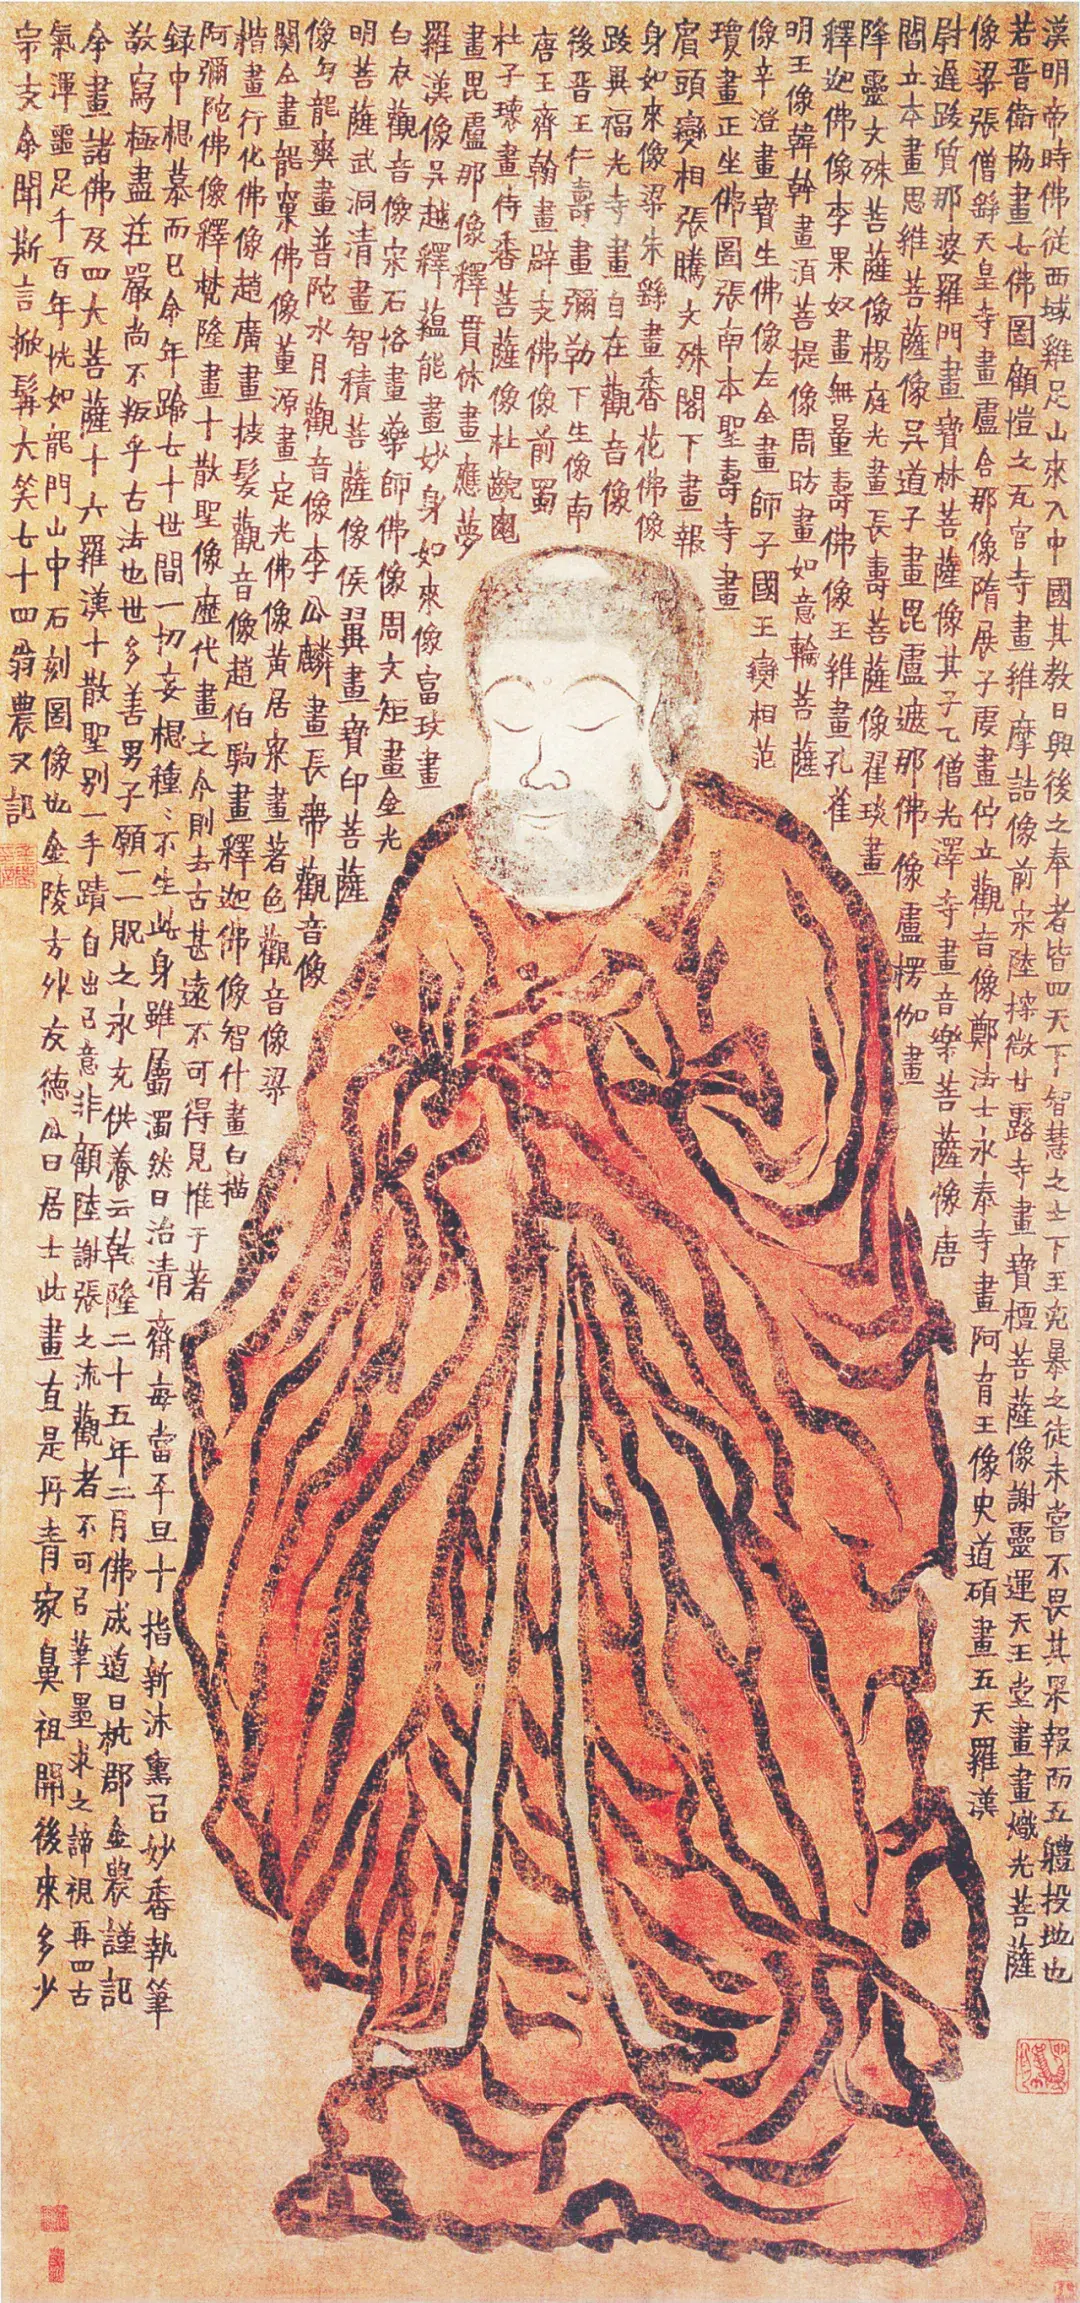 漢明帝時佛從西域雞足山來入中國其教日興後之奉者皆四天下智慧之士下至兇暴之徒未嘗不畏其果報而五體投地也
若晉衛協畫七佛圖顧愷之瓦官寺畫維摩詰像前宋陸探微甘露寺畫寶檀菩薩像謝靈運天王堂畫畫熾光菩薩
像梁張僧繇天皇寺畫盧舍那像隋展子虔畫佇立觀音像鄭法士永泰寺畫阿育王像史道碩畫五天羅漢
尉遲跋質那婆羅門畫寶林菩薩像其子乙僧光澤寺畫音樂菩薩像唐
閻立本畫思維菩薩像吳道子畫毘盧遮那佛像盧楞伽畫
降靈文殊菩薩像楊庭光畫長壽菩薩像翟琰畫
釋迦佛像李果奴畫無量壽佛像王維畫孔雀
明王像韓幹畫須菩提像周昉畫如意輪菩薩
像辛澄畫寶生佛像左全畫師子國王變相范
瓊畫正坐佛圖張南本聖壽寺畫
賓頭變相張騰文殊閣下畫報
身如來像梁朱繇畫香花佛像
跋異福光寺畫自在觀音像
後晉王仁壽畫彌勒下生像南
唐王齊翰畫辟支佛像前蜀
杜子瓌畫侍香菩薩像杜齯龜
畫毘盧那像釋貫休畫應夢
羅漢像吳越釋蘊能畫妙身如來像富玫畫
白衣觀音像宋石恪畫藥師佛像周文矩畫金光
明菩薩武洞清畫智積菩薩像侯翼畫寶印菩薩
像勾龍爽畫普陀水月觀音像李公麟畫長帶觀音像
關仝畫龍窠佛像董源畫定光佛像黃居寀畫著色觀音像梁
楷畫行化佛像趙廣畫披髮觀音像趙伯駒畫釋迦佛像智什畫白描
阿彌陀佛像釋梵隆畫十散聖像歷代畫之今則去古甚遠不可得見惟于著
録中想慕而已余年踰七十世間一切妄想種〻不生此身雖屬濁然日治清齋每當平旦十指新沐熏已妙香執筆
敬寫極盡莊嚴尚不叛乎古法也世多善男子願一一貺之永充供養云乾隆二十五年二月佛成道日杭郡金農謹記
余畫諸佛及四大菩薩十六羅漢十散聖別一手蹟自出己意非顧陸謝張之流觀者不可以筆墨求之諦視再四古
氣渾噩足千百年恍如龍門山中石刻圖像也金陵方外友德公曰居士此畫直是丹青家鼻祖開後來多少
宗支余聞斯言掀髯大笑七十四翁農又記